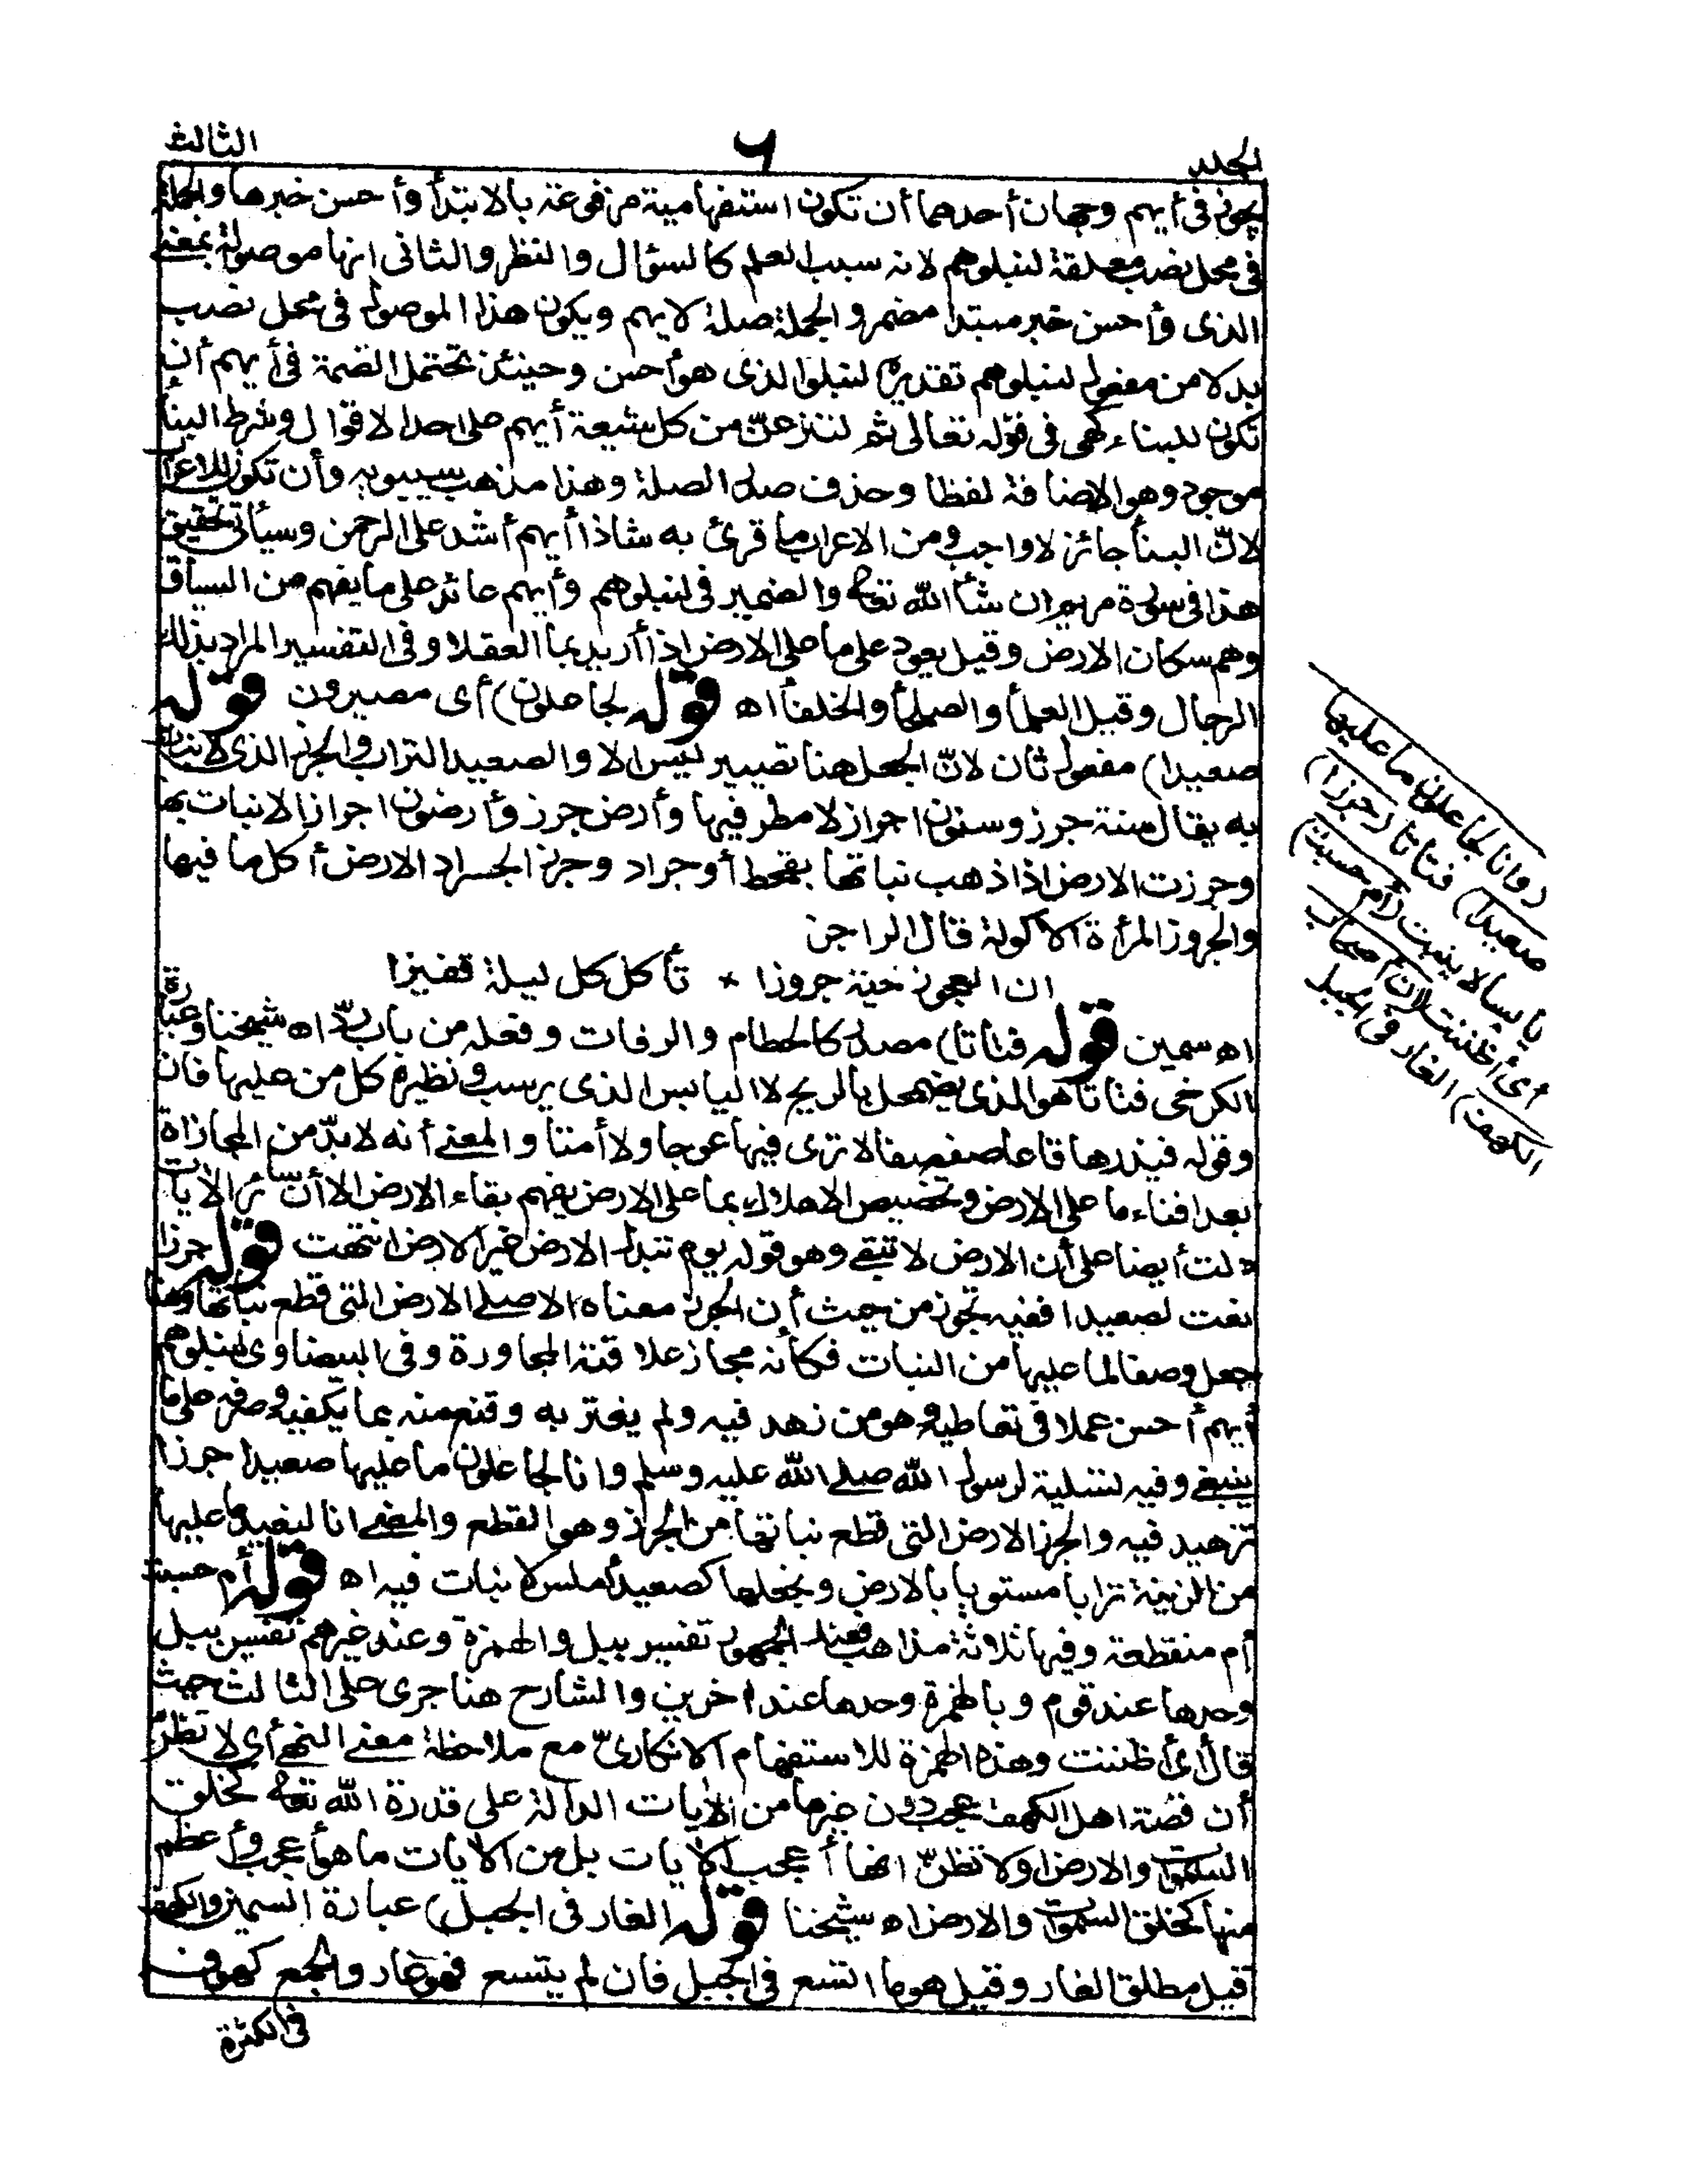 المجلد
٦
الثالث
يجوز فى أيهم وجهان أحدهما أن تكون استفهامية مرفوعة بالابتدأ وأحسن خبرها والجملة
فى محل نصب معلقة لنبلوهم لانه سبب العلم كالسؤال والنظر والثانى انها موصولة بمعنى
الذى وأحسن خبر مبتدا مضمر والجملة صلة لايهم ويكون هذا الموصول فى محل نصب
بدلا من مفعول لنبلوهم تقديره لنبلو الذى هو أحسن وحينئذ تحتمل الضمة فى أيهم أن
تكون للبناء كهى فى قوله تعالى ثم لننزعنّ من كل شيعة أيهم على احد الاقوال وشرط البنأ
موجود وهو الاضافة لفظا وحذف صدر الصلة وهذا مذهب سيبويه وأن تكون للاعراب
لانّ البنأ جائز لا واجب ومن الاعراب ما قرئ به شاذا أيهم أشد على الرحمن وسيأتى تحقيق
هذا فى سورة مريم ان شأ الله تعالى والضمير فى لنبلوهم وأيهم عائد على ما يفهم من السياق
وهم سكان الارض وقيل يعود على ما على الارض اذا أريد بما العقلا وفى التفسير المراد بذلك
الرجال وقيل العلمأ والصلحأ والخلفأ اه قوله لجاعلون) أى مصيرون قوله
صعيدا) مفعول ثان لانّ الجعل هنا تصيير ليس الا والصعيد التراب والجرز الذى لا نبات
به يقال سنة جرز وسنون اجراز لا مطر فيها وأرض جرز وأرضون اجراز الا نبات بها
وجرزت الارض اذا ذهب نباتها بقحط أو جراد وجرز الجراد الارض أكل ما فيها
والجروز المرأة الاكولة قال الراجز
ان العجوز خبة جروزا * تأكل كل ليلة قفيزا
اه سمين قوله فتاتا) مصدر كالحطام والرفات وفعله من باب ردّ اه شيخنا وعبارة
الكرخى فتاتا هو الذى يضمحل بالريح لا اليابس الذى يرسب ونظيره كل من عليها فان
وقوله فيذرها قاعا صفصفا لا ترى فيها عوجا ولا أمتا والمعنى أنه لا بدّ من المجازاة
بعد افناء ما على الارض وتخصيص الاهلاك بما على الارض يفهم بقاء الارض الا أن سائر الآيات
دلت أيضا على أن الارض لا تبقى وهو قوله يوم تبدل الارض غير الارض انتهت قوله جرزا
نعت لصعيدا ففيه تجوز من حيث أن الجرز معناه الاصلى الارض التى قطع نباتها وهنا
جعل وصفا لما عليها من النبات فكأنه مجاز علاقته المجاورة وفى البيضاوى لنبلوهم
أيهم أحسن عملا فى تعاطيه وهو من زهد فيه ولم يغتر به وقنع منه بما يكفيه وصرفه على ما
ينبغى وفيه تسلية لرسول الله صلى الله عليه وسلم وانا لجاعلون ما عليها صعيدا جرزا
تزهيد فيه والجرز الارض التى قطع نباتها من الجرز وهو القطع والمعنى انا لنعيد ما عليها
من الزينة ترابا مستويا بالارض ونجعلها كصعيد أملس لا نبات فيه اه قوله أم حسبت
أم منقطعة وفيها ثلاثة مذاهب فعند الجمهور تفسر ببل والهمزة وعند غيرهم تفسر ببل
وحدها عند قوم وبالهمزة وحدها عند آخرين والشارح هنا جرى على الثالث حيث
قال أى أظننت وهذه الهمزة للاستفهام الانكارىّ مع ملاحظة معنى النهى أى لا تظنّ
أن قصة اهل الكهف عجب دون غيرها من الآيات الدالة على قدرة الله تعالى كخلق
السموات والارض ولا تظنّ انها أعجب الآيات بل من الآيات ما هو أعجب وأعظم
منها كخلق السموات والارض اه شيخنا قوله الغار فى الجبل) عبارة السمين والكهف
قيل مطلق الغار وقيل هو ما اتسع فى الجبل فان لم يتسع فهو غار والجمع كهوف
فى الكثرة
(وانا لجاعلون ما عليها
صعيدا) فتاتا (جرزا)
يابسا لا ينبت (أم حسبت)
أى أظننت (ان أصحاب
الكهف) الغار فى الجبل